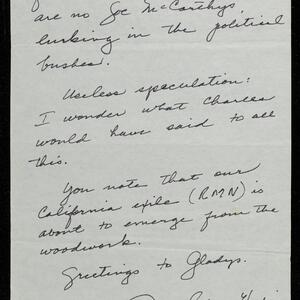 are no Joe McCarthys,
lurking in the political
bushes.
Useless speculation:
I wonder what Charles
would have said to all
this.
You note that our
California exile (RMN) is
about to emerge from the
woodwork.
Greetings to Gladys.